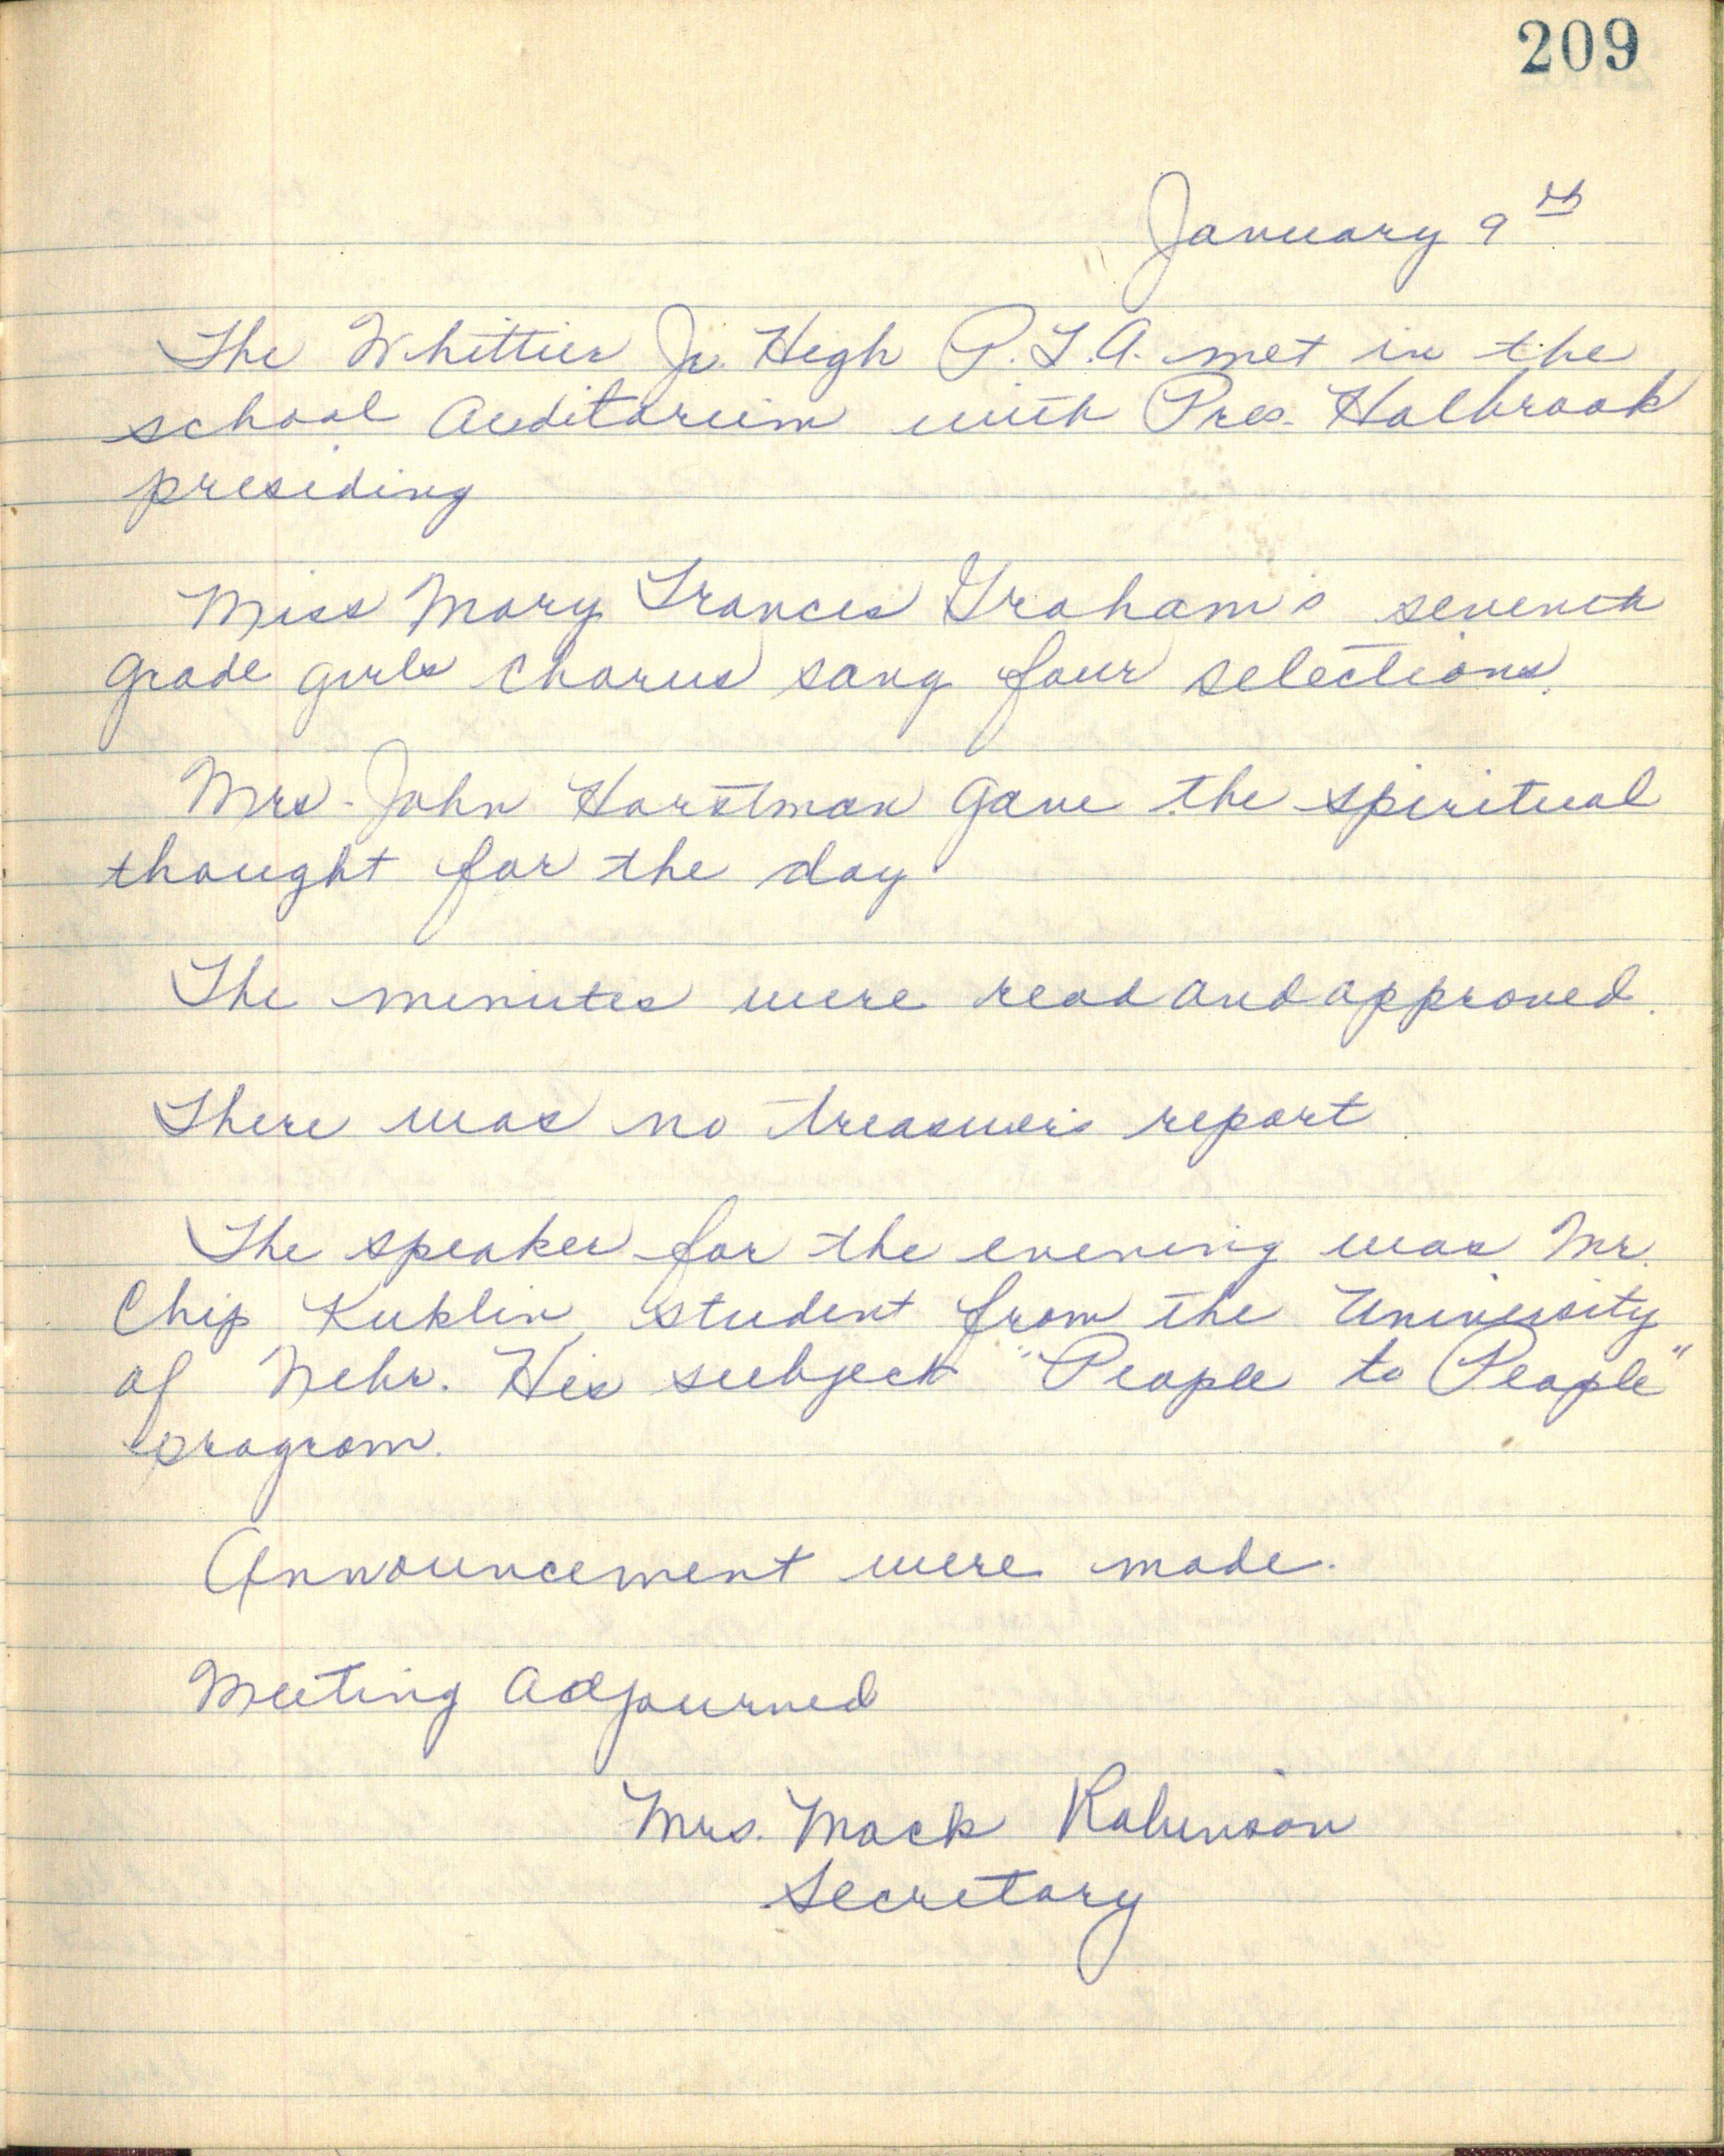 209
January 9th
The Whittier Jr. High P.T.A. met in the
school auditorium with Pres. Holbrook
presiding
Miss Mary Frances Grahams seventh
grade girls chorus sang four selections.
Mrs. John Horstman gave the spiritual
thought for the day
The minutes were read and approved.
There was no treasurer's report.
The speaker for the evening was Mr.
Chip Kuklin, student from the University
of Nebr. His subject "People to People"
program.
Announcement were made.
Meeting adjourned
Mrs. Mack Robinson
Secretary